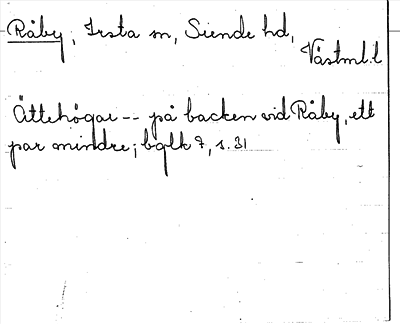 Råby, Irsta sn, Siende hd,
Västml.l
Ättehögar -- på backen vid Råby, ett
par mindre; bqlk 7, s. 31